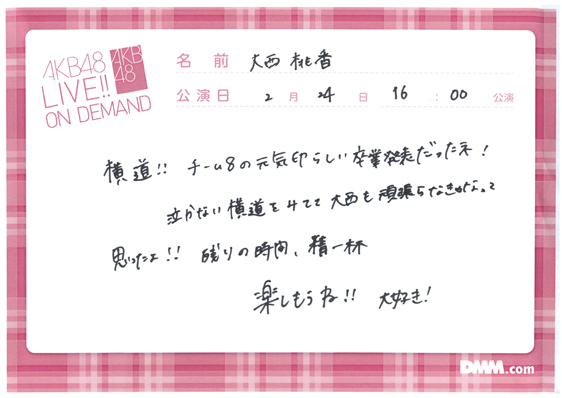 AKB48
LIVE!!
ON DEMAND
AKB
48
名前 大西桃香
公演日 2月24日 16:00公演
横道!! チーム8の元気印らしい卒業発表だったネ!
泣かない横道をみてて大西も頑張らなきゃなって
思ったよ!! 残りの時間、精一杯
楽しもうね!! 大好き!
DMM.com